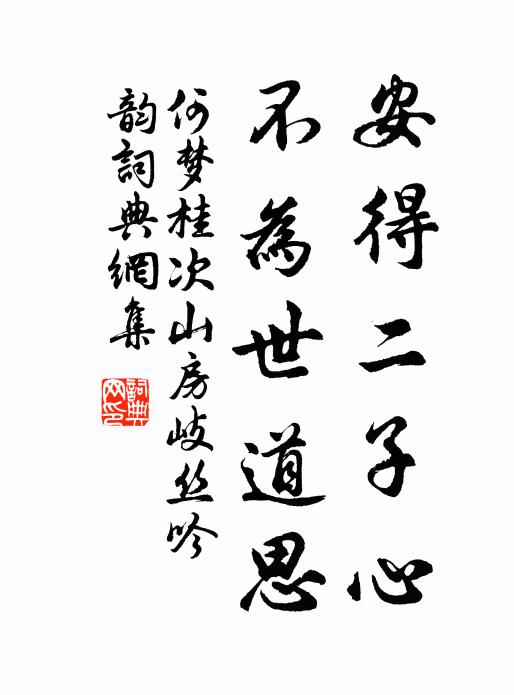 安得二子心
不為世道思
何梦桂次山房歧丝吟
韵詞典網集
詞典网印